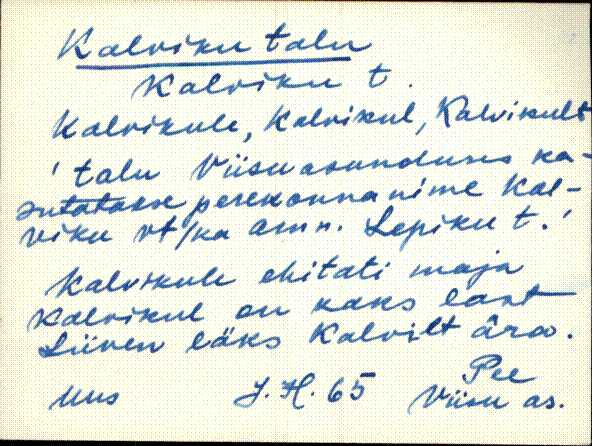 Kalviku talu
Kalviku t.
Kalvikule, Kalvikul, Kalvikult
'talu Viisu asunduses ka-
sutatakse perekonnanime Kal-
viku vt/ka Amn. Lepiku t.'
Kalvikule ehitati maja
Kalvikul on kaks last
Liiven läks Kalvilt ära.
Pee
Uus J. H. 65 Viisu as.